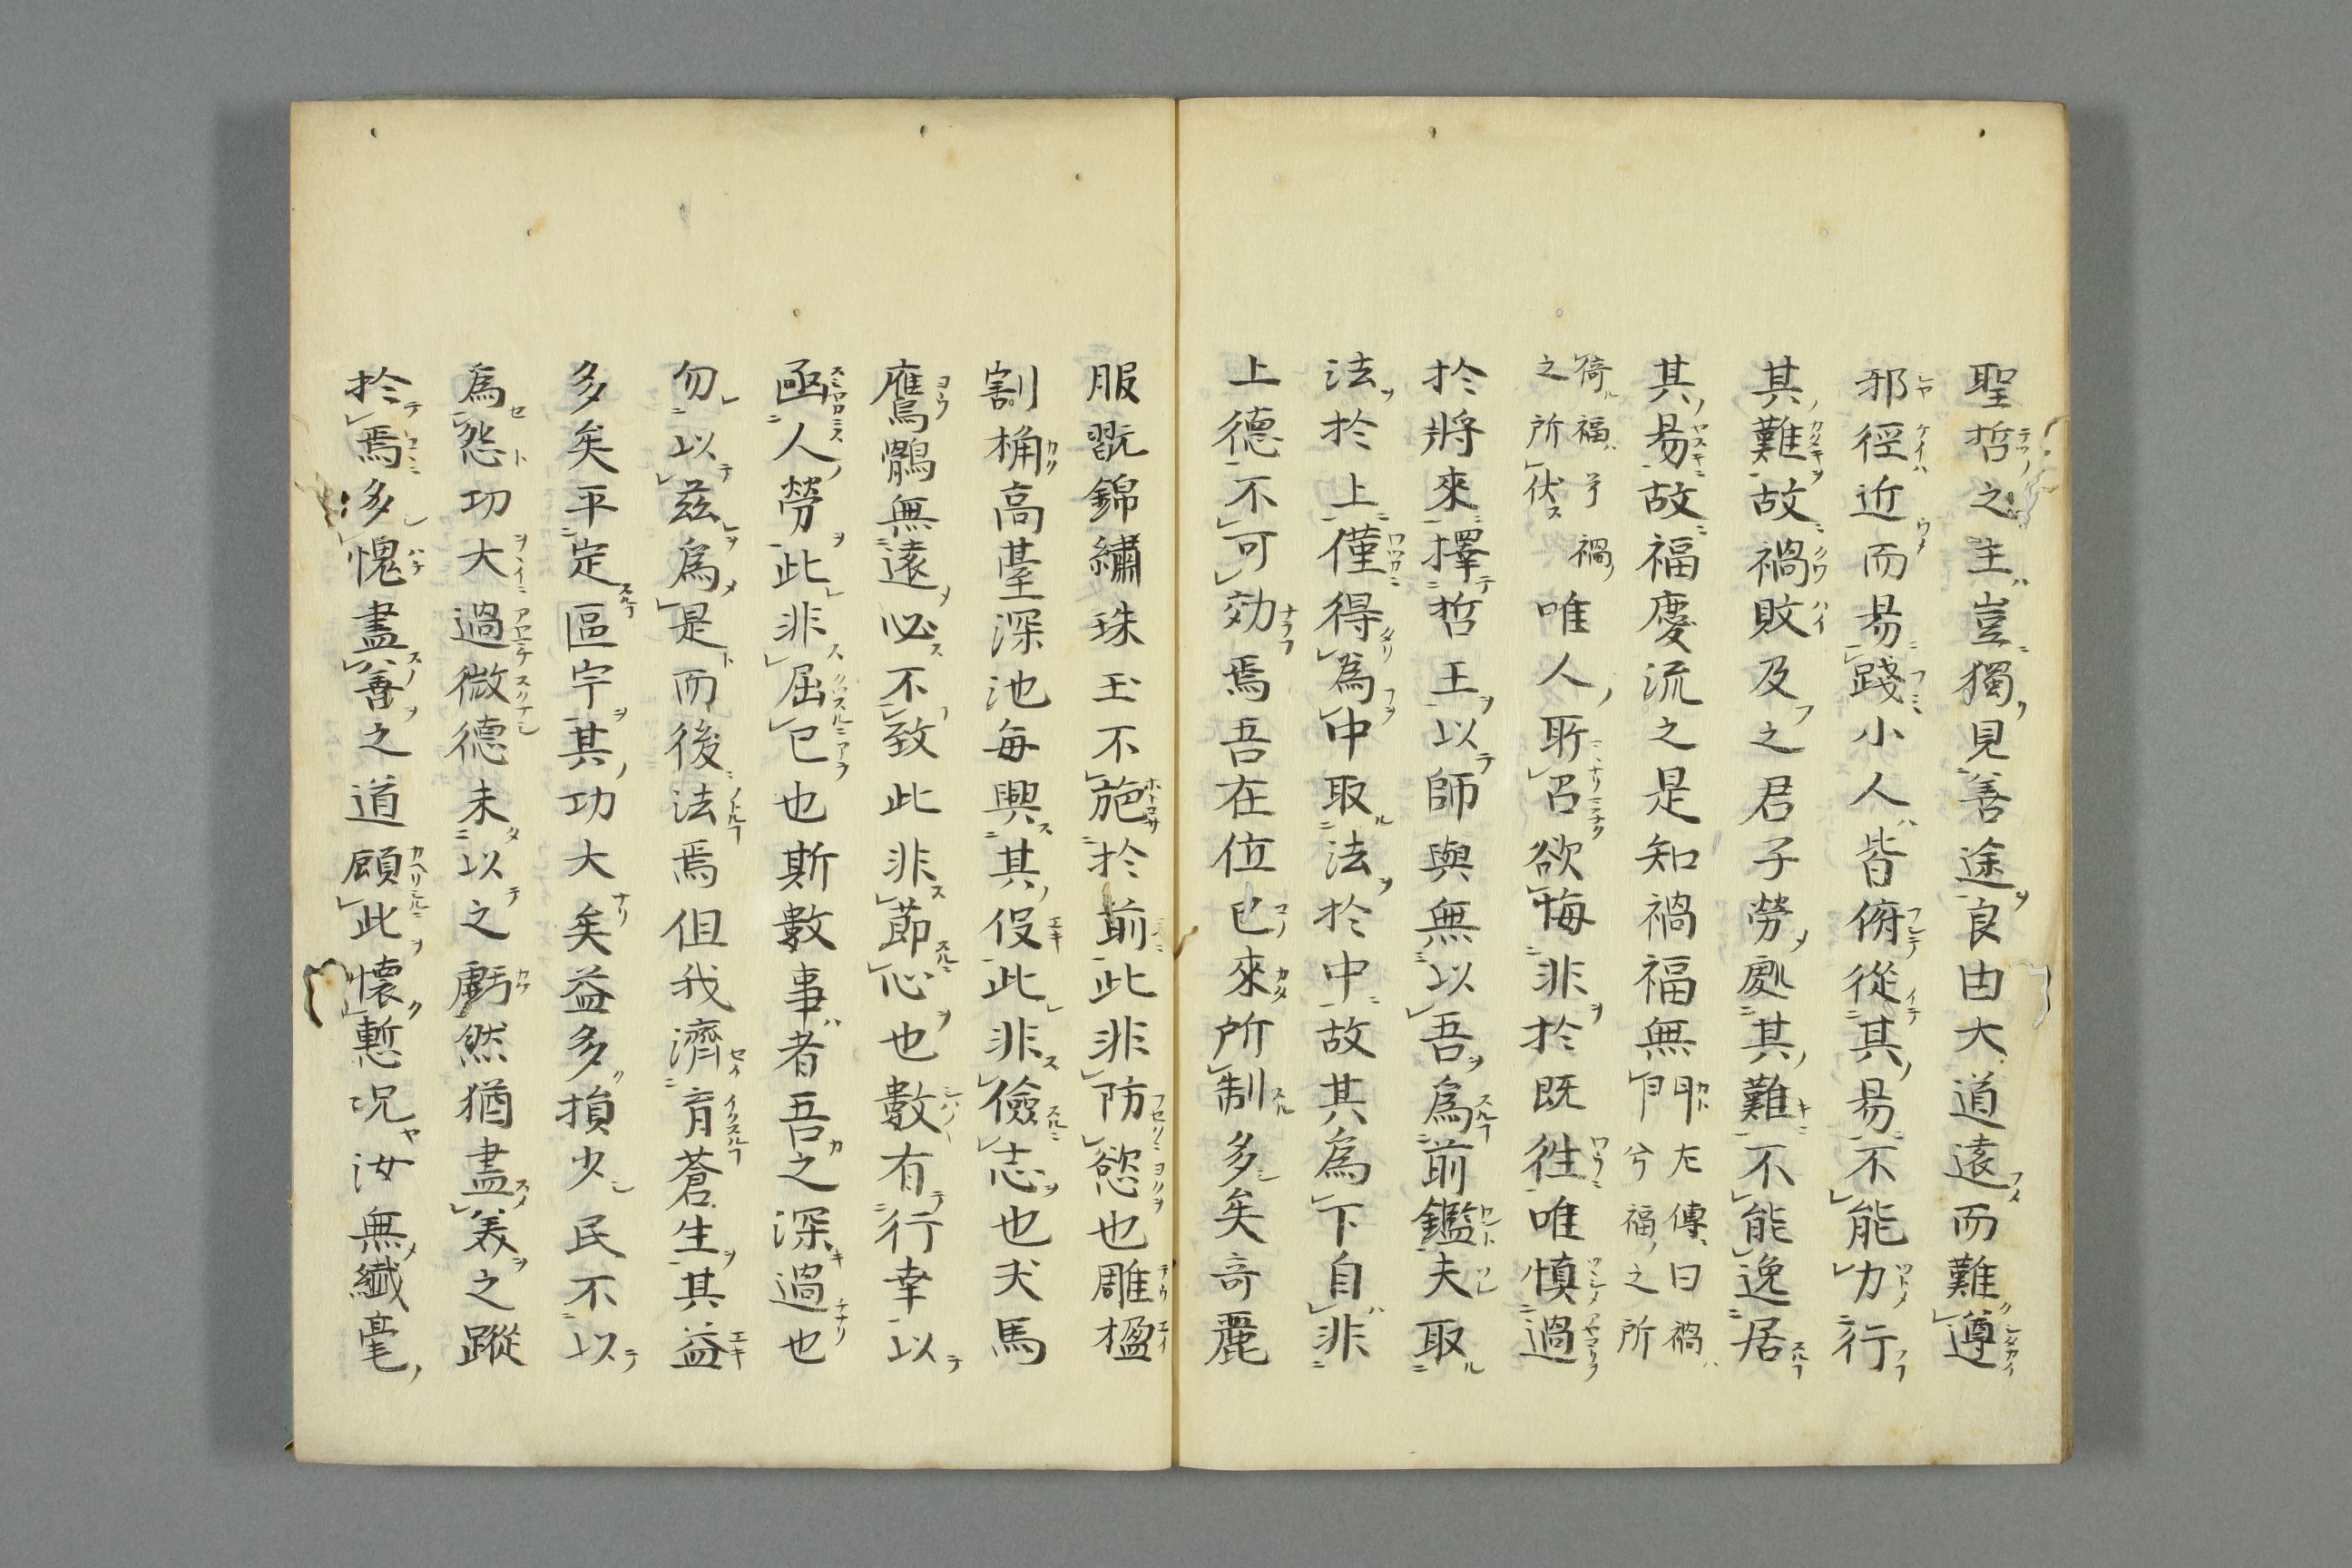 聖哲之主豈獨見善途良由大道遠而難遵
邪徑近而易踐小人皆俯從其易不能力行
其難故禍敗及之君子勞處其難不能逸居
其易故福慶流之是知禍福無門左傳曰禍兮福之所
倚福兮禍之所伏唯人所召欲悔非於既往唯慎過
於將來擇哲王以師與無以吾爲前鑑夫取
法於上僅得為中取法於中故其為下自非
上德不可効焉吾在位已來所制多矣奇麗
服翫錦繡珠玉不施於前此非防慾也雕楹
割桷高臺深池每興其役此非儉志也犬馬
鷹鶻無遠必不致此非節心也數有行幸以
亟人勞此非屈已也斯數事者吾之深過也
勿以茲爲是而後法焉但我濟育蒼生其益
多矣平定區宇其功大矣益多損少民不以
爲怨功大過微德未以之虧然猶盡美之蹤
於焉多愧盡善之道顧此懷慙況汝無纎毫